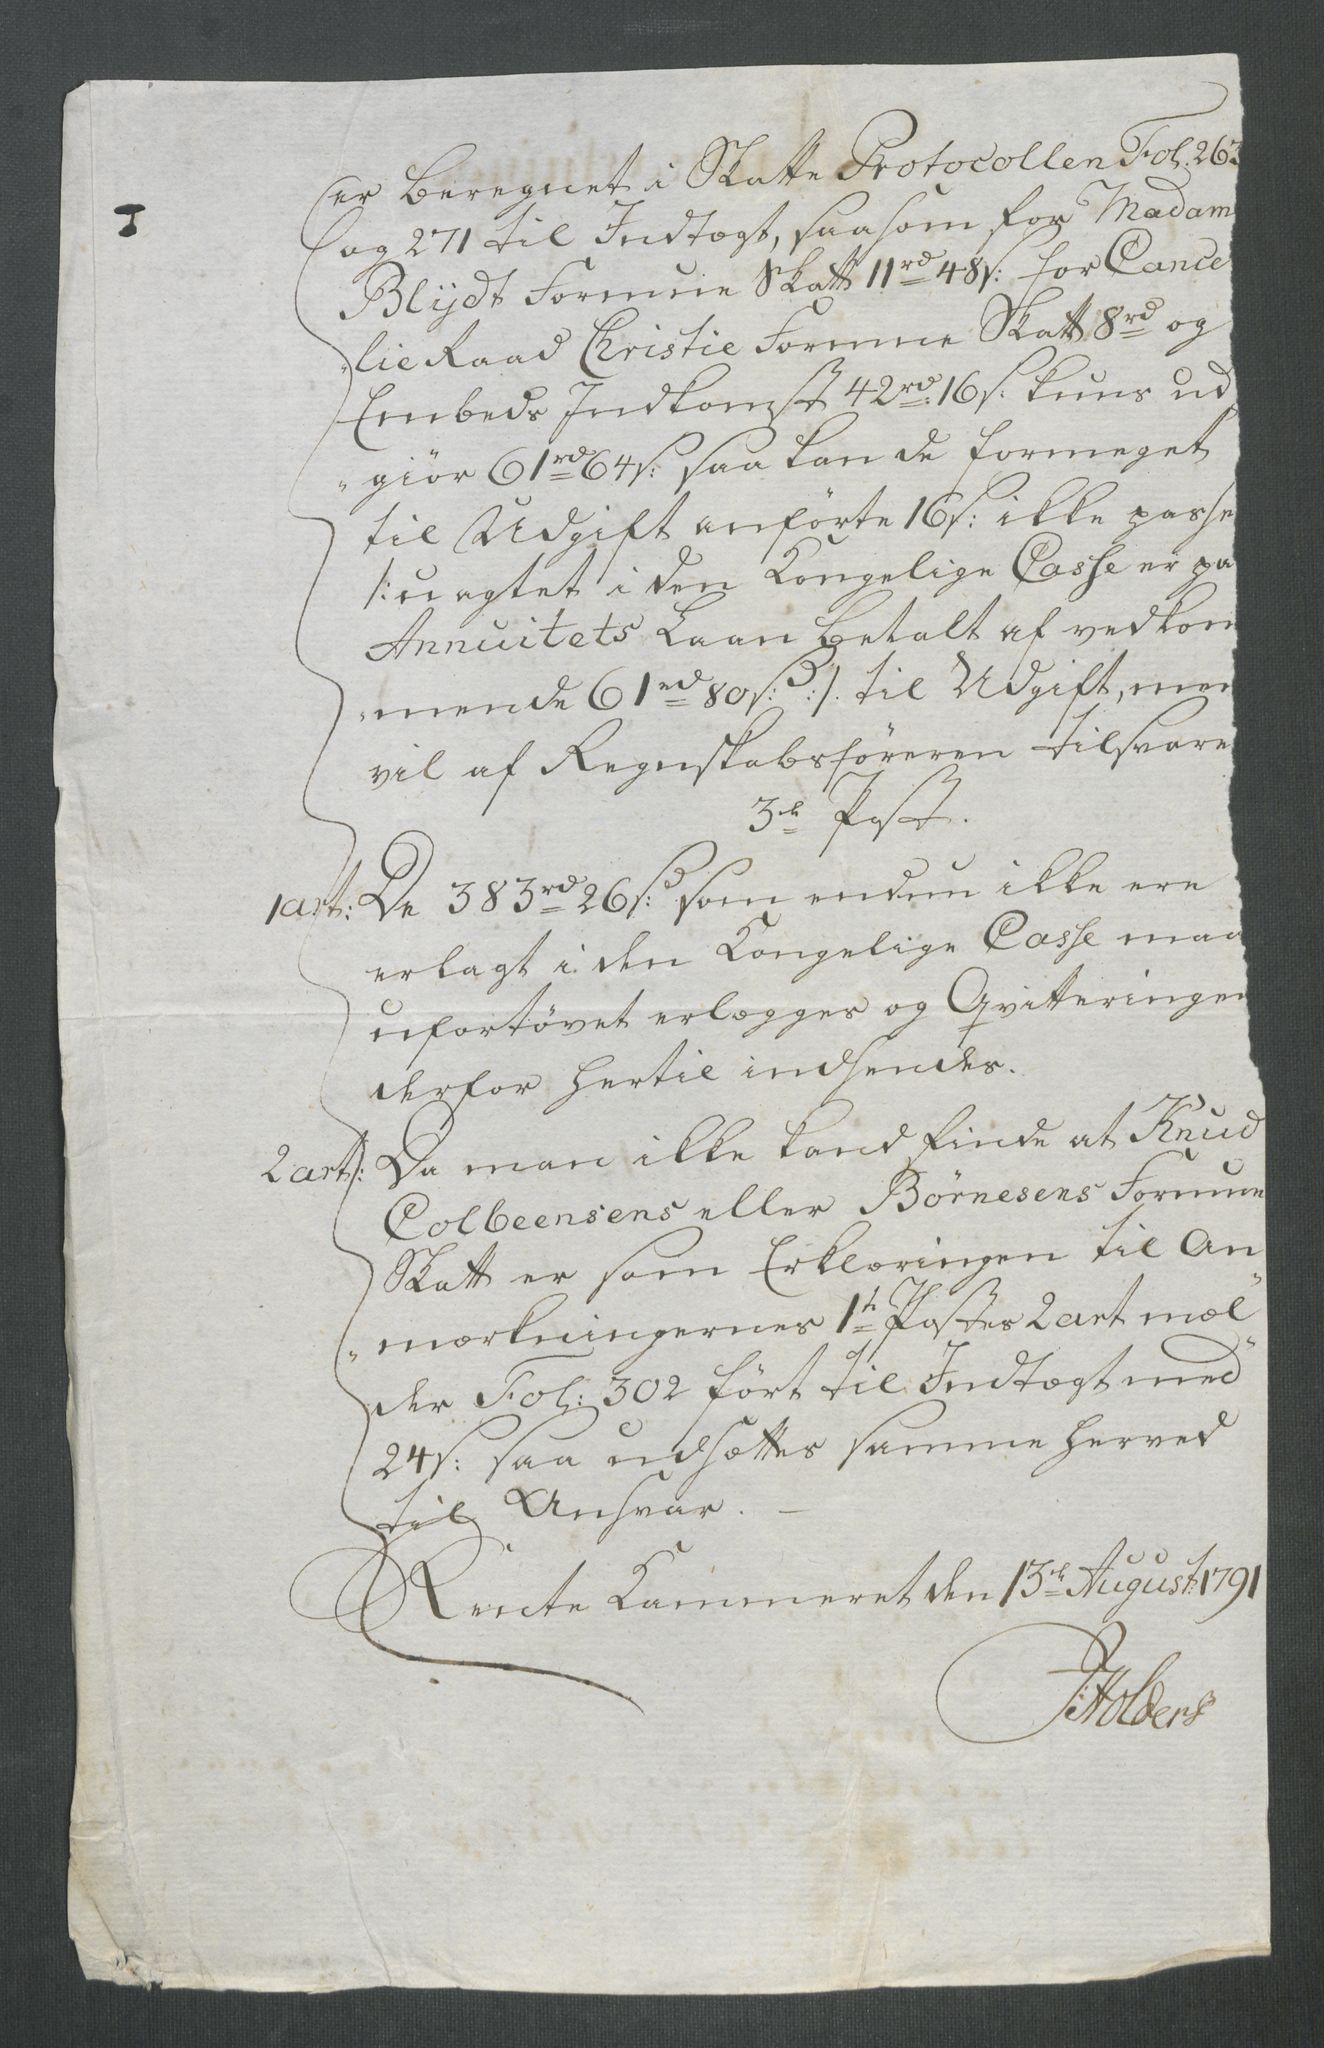 er beregnet i Skatte Protocollen Fol. 263
og 271 til Indtægt, saasom for Madam
Blÿdt Formue Skatt 11rd 48s: for Cance
"lie Raad Christie Formue Skatt 8rd og
Embeds Indkomst 42rd 16s: kuns ud
"giör 61rd 64s: saa kan de formeget
til Udgift anförte 16s: ikke passe
/: uagtet i den Kongelige Casse er pa
Annuitets Laan betalt af vedkom
"mende 61rd 80s: :/ til Udgift, men
vil af Regnskabsföreren tilsvare
3de Post.
1 art: De 383rd 26s: som endnu ikke ere
erlagt i den Kongelige Casse maa
ufortövet erlægges og Qvitteringen
derfor hertil indsendes.
2 art: Da man ikke kand finde at Knud
Colbeensens eller Börnesens Formue
Skatt er som Erklæringen til An
"mærkningernes 1te Postes 2 art mel
der Fol: 302 fört til Indtægt med
24s: saa udsættes samme herved
til Ansvar. —
Rente Kammeret den 13de August: 1791